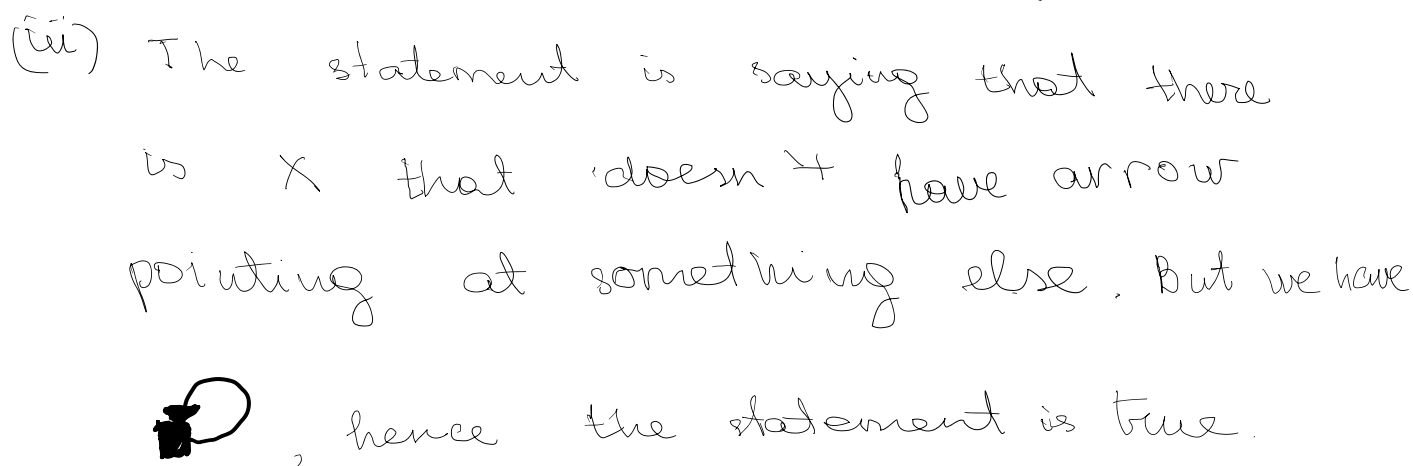 (iii) The statement is saying that there
is X that doesn't have arrow
pointing at something else. But we have
, hence the statement is true.